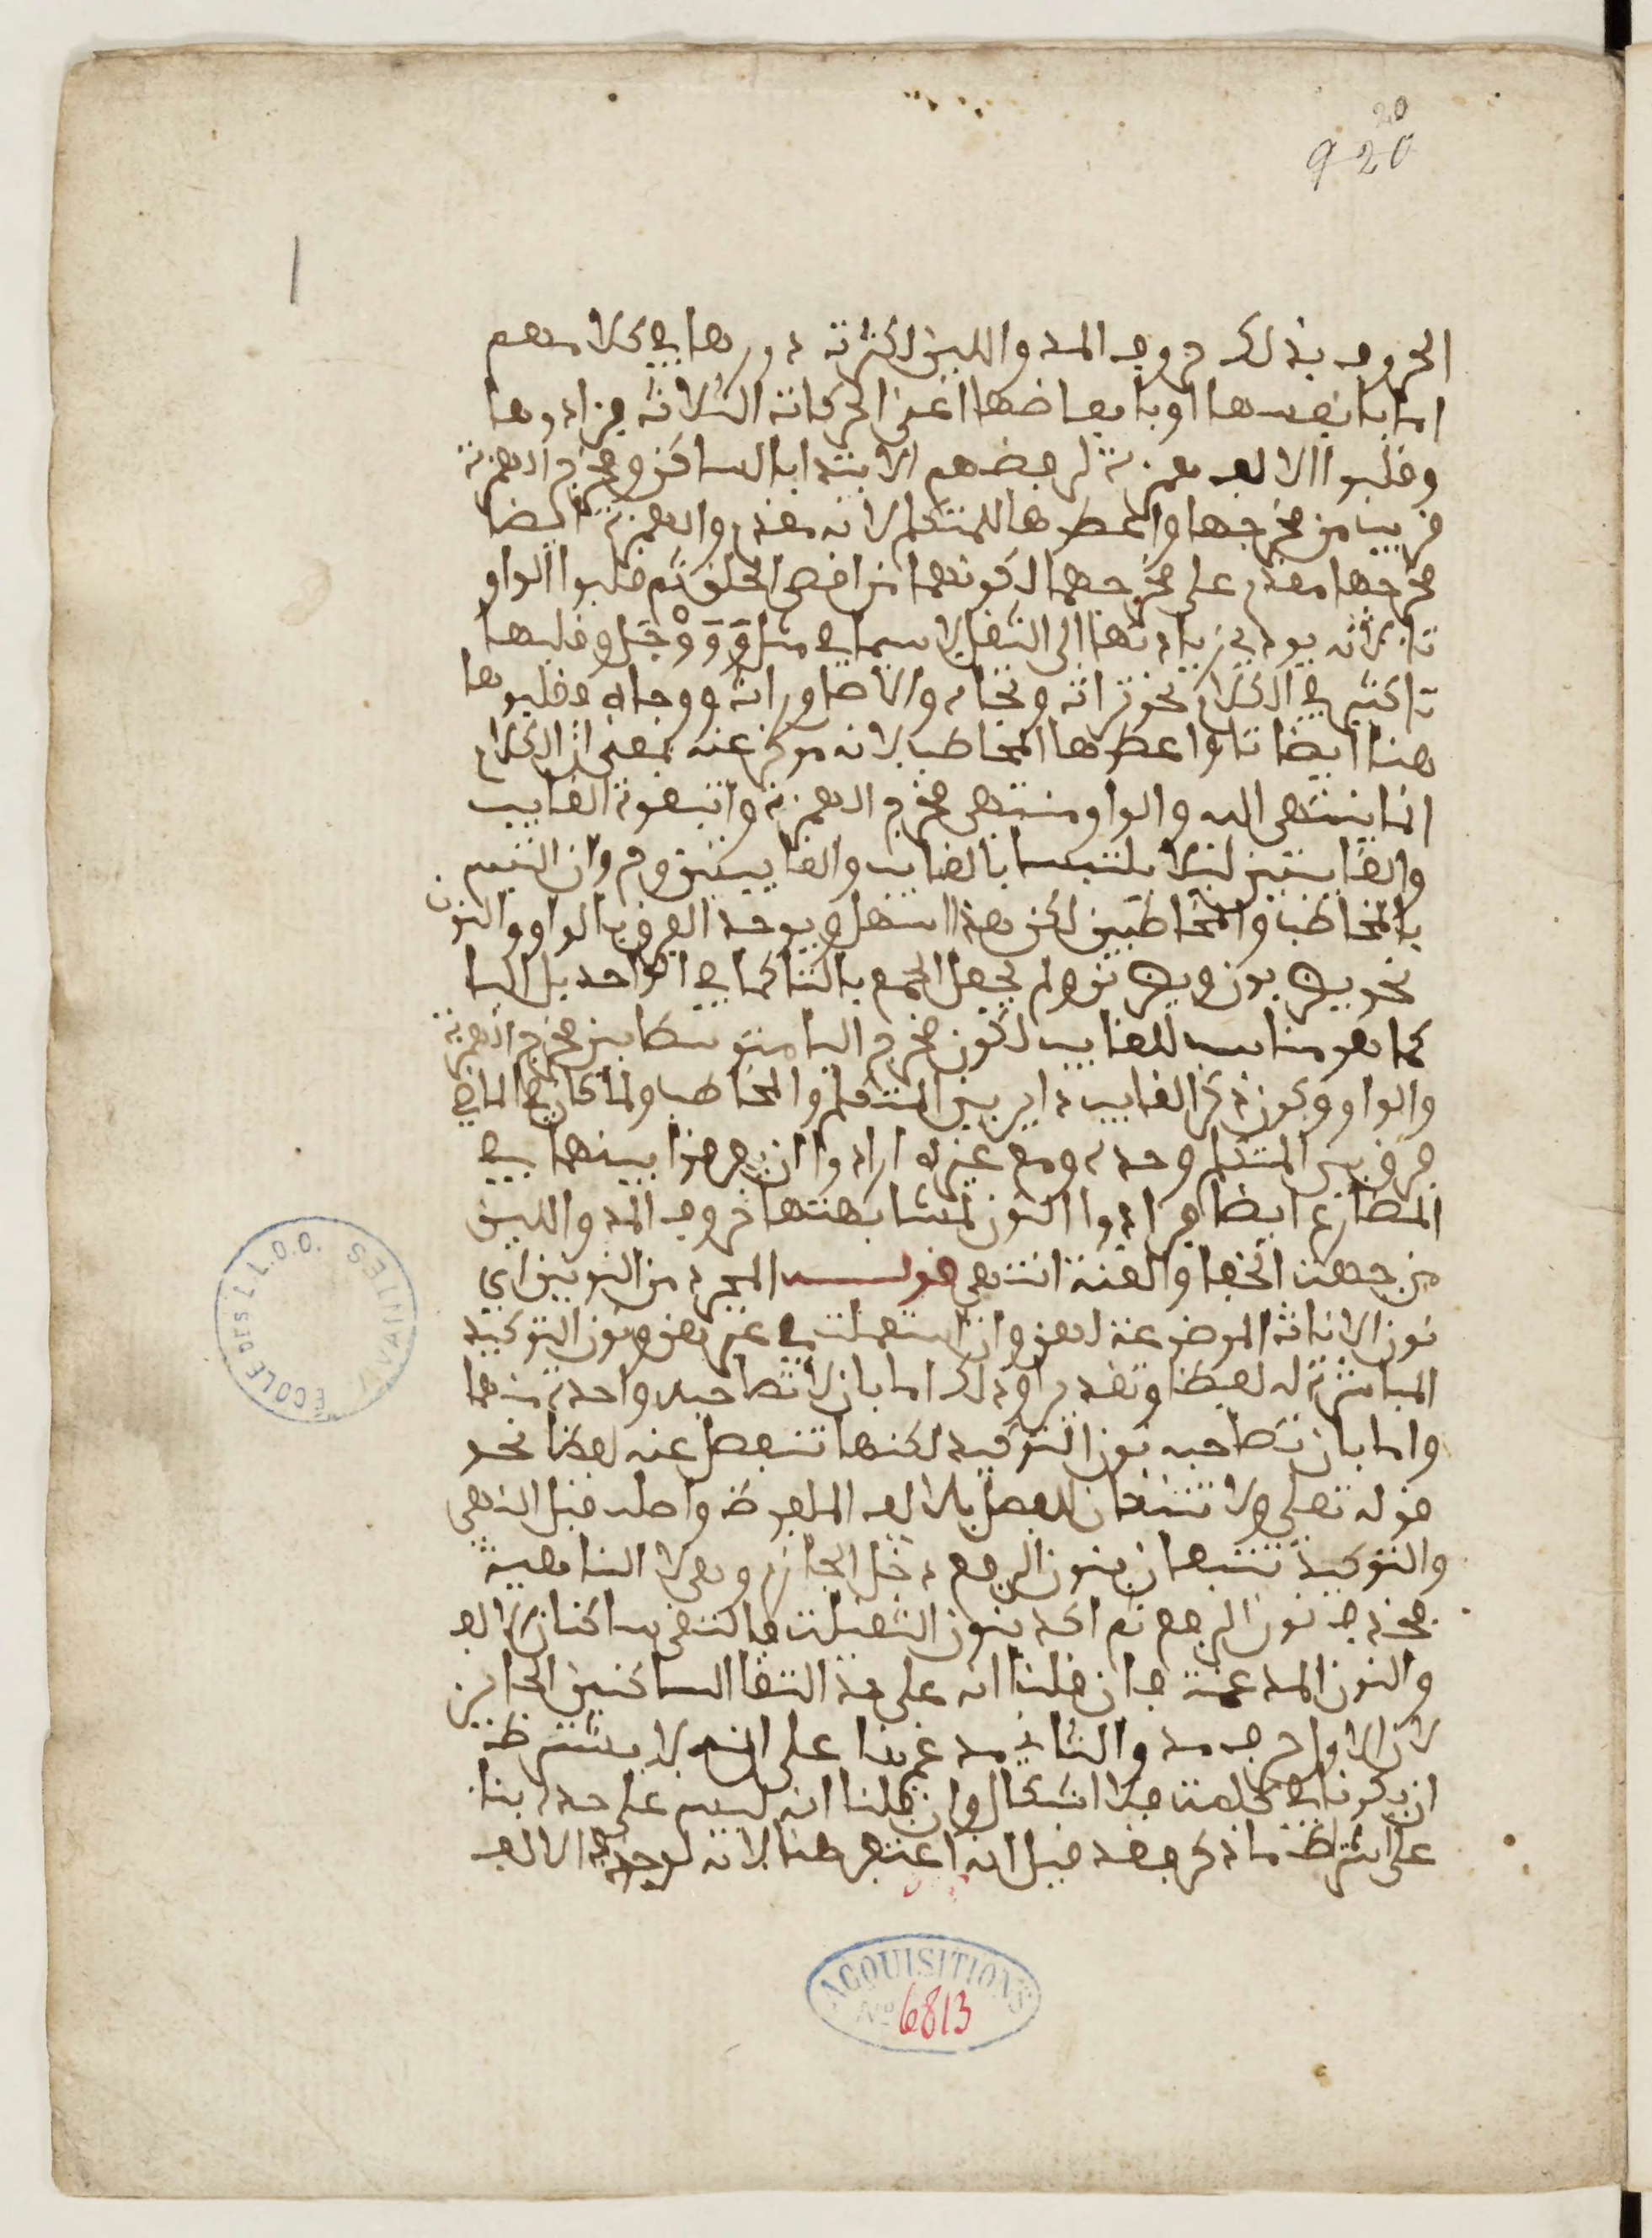 20
920
الحروف بذلك حروف المد واللين لكثرة دورها في كلامهم
اما بانفسها او بابعاضها اعني الحركات الثلاث فزادوها
وقلبوا الالف همزة لرفضهم الابتدا بالساكن ومخرج الهمزة
قريب من مخرجها واعطوها للمتكلم لانه مقدم والهمزة ايضا
مخرجها مقدم على مخرجهما لكونهما من اقصى الحلق ثم قلبوا الواو
تا لانه يودي زيادتها الى الثقل لا سيما في مثل وَوَوْجَل وقلبها
تا كثير في الكلام نحو تراث وتجاه والاصل وراث ووجاه وقلبوها
هنا ايضا تا واعطوها المخاطب لانه موخر عنه بمعنى ان الكلام
انما ينتهي اليه والواو منتهى مخرج الهمزة واتبعوه الغايب
والغايبتين ليلا يلتبسا بالغايب والغايبين وم وان التبس
بالمخاطب والمخاطبين لكن هذا اسهل ويوجد الفرق بالواو والنون
نحو يضربون ويضربن ولم يجعل الجمع بالتا كما في الواحد بل اليا
كما هو مناسب للغايب لكون مخرج اليا متوسطا بين مخرج الهمزة
والواو وكون ذكر الغايب داير بين المتكلم والمخاطب ولما كان في الماضي
فرق بين المتكلم وحده ومع غيره ارادوا ان يفرقوا بينهما في
المضارع ايضا فزادوا النون لمشابهتها حروف المد واللين
من جهة الخفا والغنة انتهى قولـــه المجرد من النونين اي
نون الاناث الموضوعة لهن وان استعملت في غيرهن ونون التوكيد
المباشرة له لفظا وتقديرا وذلك اما بان لا تصاحبه واحدة منهما
واما بان تصاحبه نون التوكيد لكنها تنفصل عنه لفظا نحو
قوله تعلى ولا تتبعان للفصل بالالف الملفوظ واصله قبل النهي
والتوكيد تتبعان بنون الرفع دخل الجازم وهي لا الناهية
فحذف نون الرفع ثم اكد بنون الثقيلة فالتقى ساكنان الالف
والنون المدغمة فان قلنا انه على حد التقا الساكنين الجايز
لان الاول حرف مد والثاني مدغم بنا على انه لا يشترط
ان يكونا في كلمة فلا اشكال وان قلنا انه ليس على حده بنا
على اشتراط ما ذكر فقد قيل انه اغتفر هنا لانه لو حذف الالف
ECOLE DES LL.O.O. VIVANTES
ACQUISITIONS
No 6813